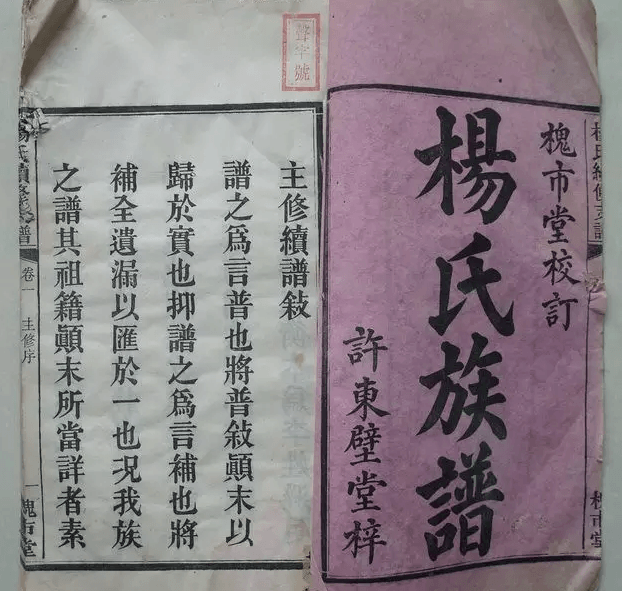 楊氏續修支譜
槐市堂
槐市堂校訂
楊氏族譜
許東壁堂梓
聲字號
主修續譜敍
譜之爲言普也將普敍顚末以
歸於實也抑譜之爲言補也將
補全遺漏以匯於一也况我族
之譜其祖籍顚末所當詳者素
楊氏續修支譜
卷一
主修序
一
槐市堂